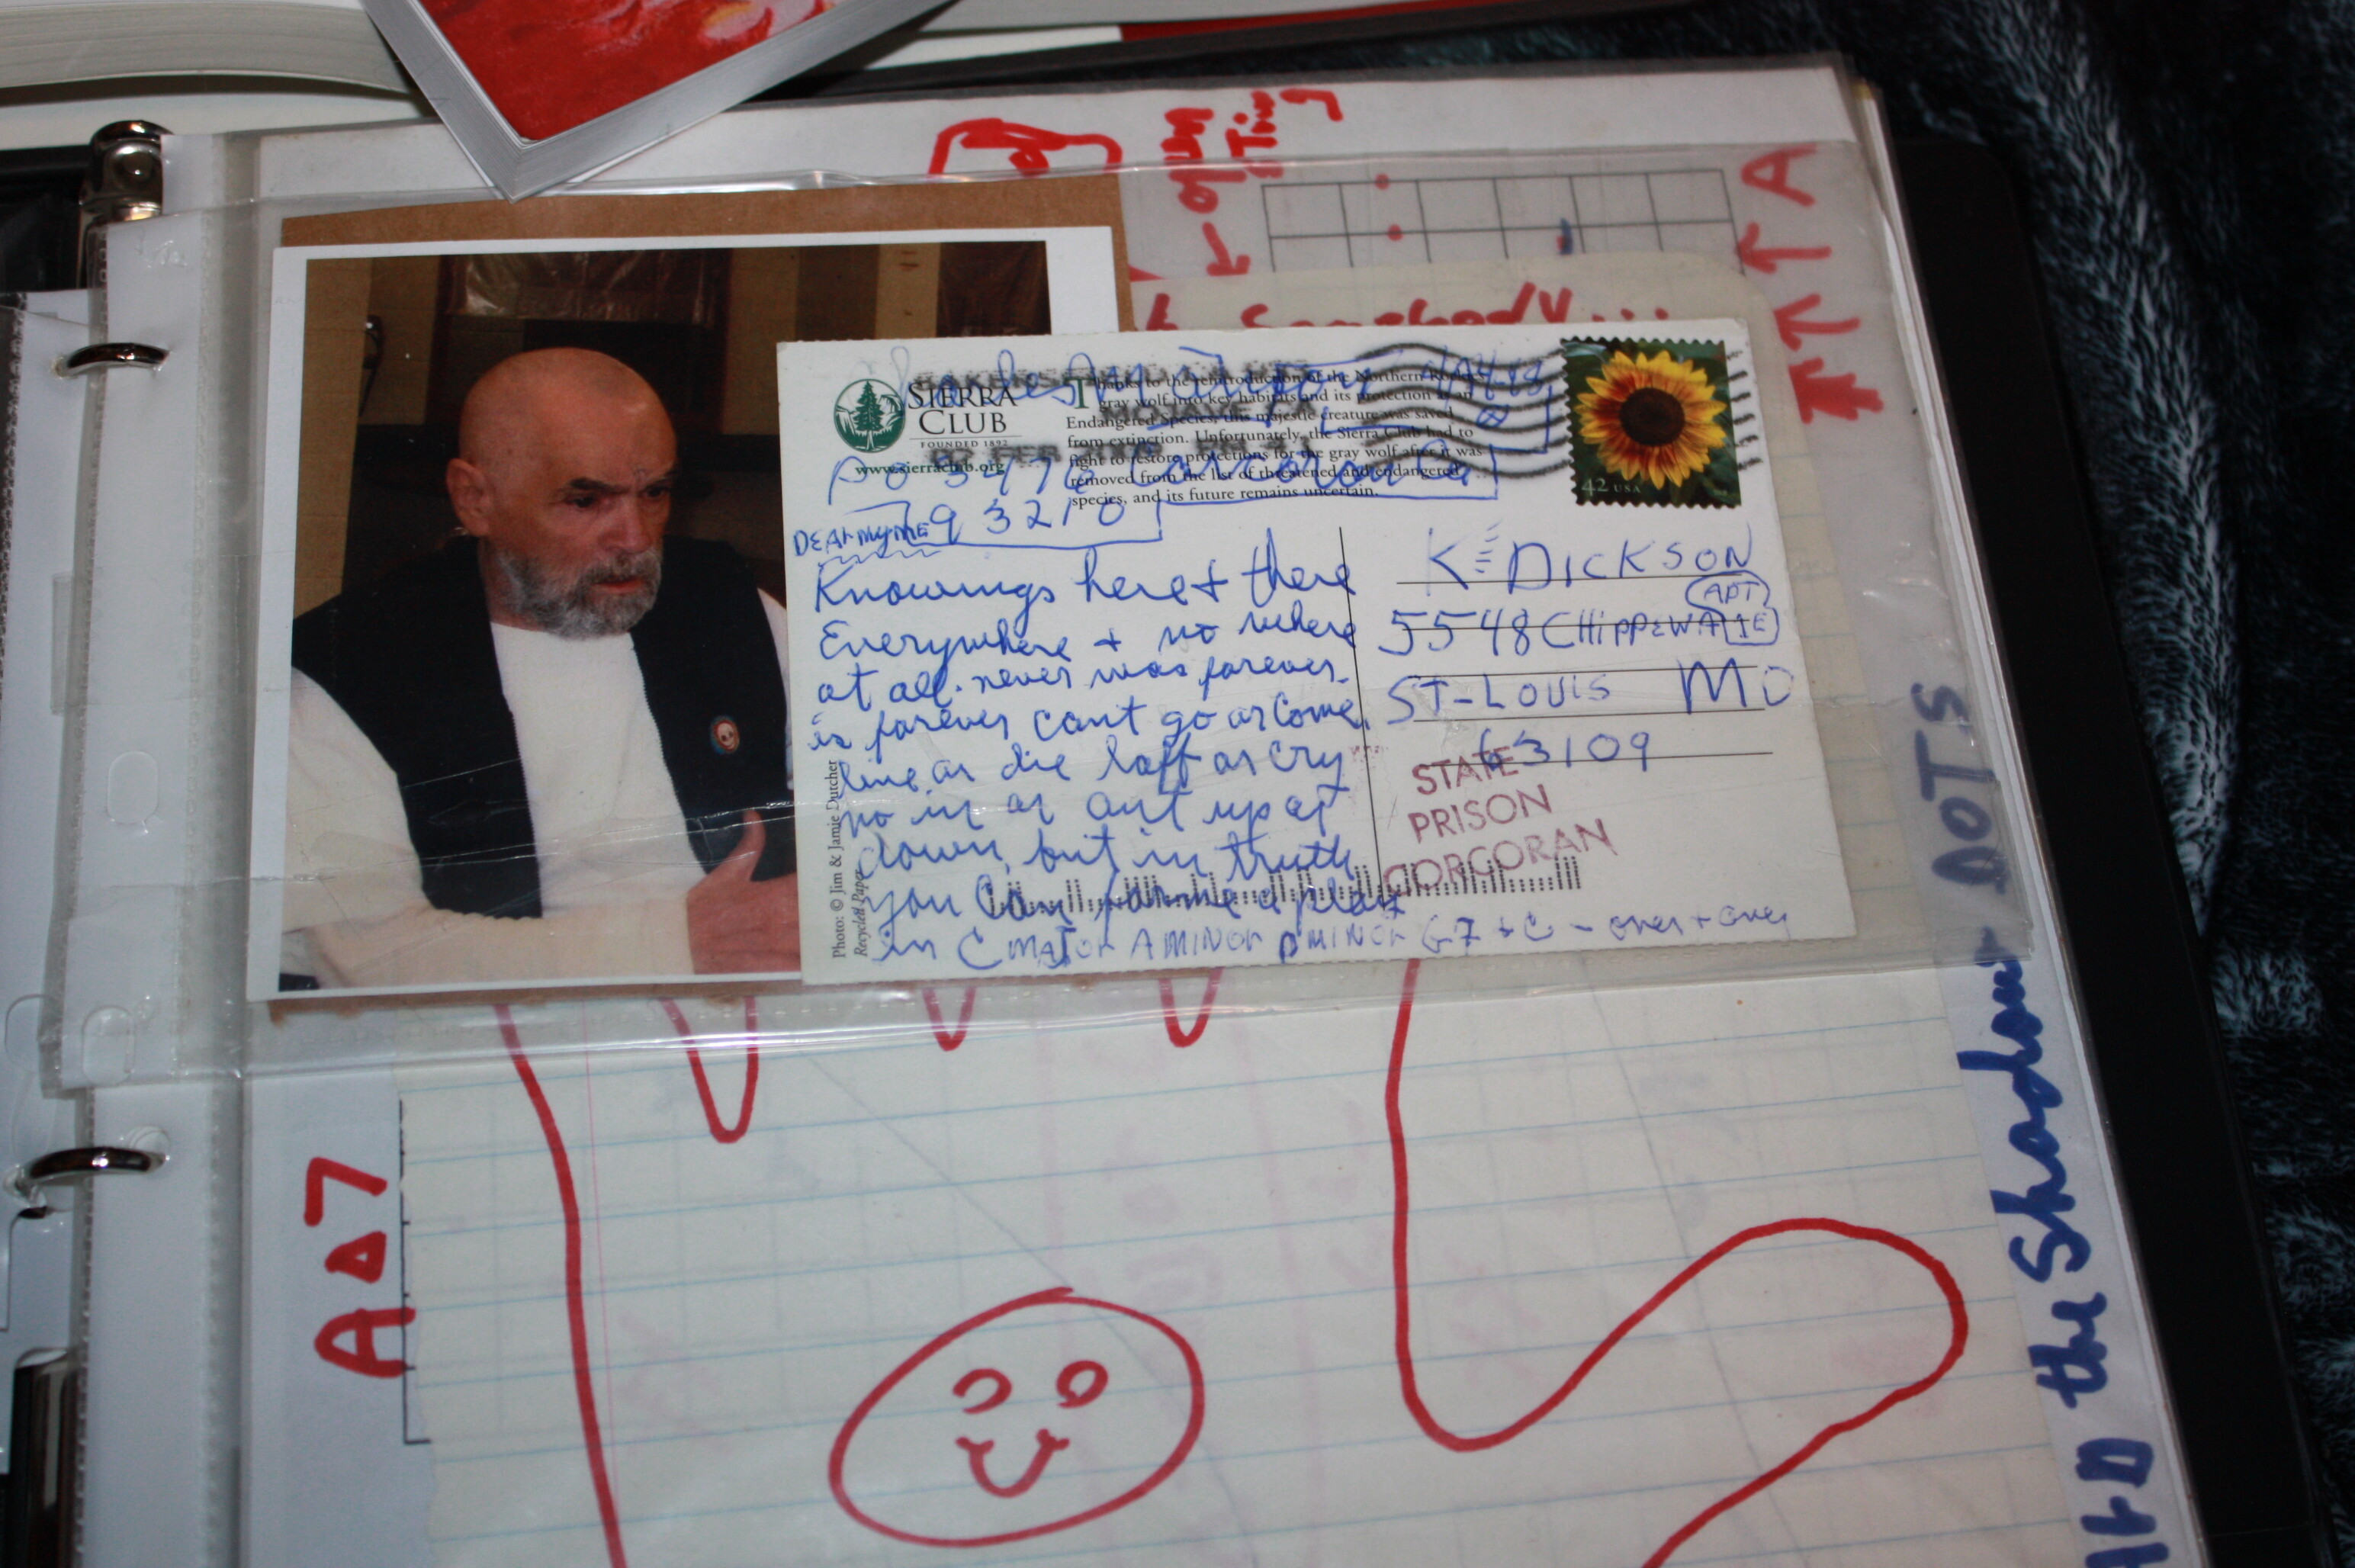 SIERRA
CLUB
FOUNDED 1892
www.sierraclub.org
Thanks to the reintroduction of the Northern Rockies
gray wolf into key habitats and its protection as an
Endangered Species, this majestic creature was saved
from extinction. Unfortunately, the Sierra Club had to
fight to restore protections for the gray wolf after it was
removed from the list of threatened and endangered
species, and its future remains uncertain.
MOJAVE
PO 3476 Corcoran Ca
93210
42 USA
Knowings here + there
Everywhere + no where
at all. never was forever.
is forever cant go or come.
live or die laff or cry
no in or out up or
down, but in truth
you can play
in C MAJOR A MINOR D MINOR G7 + C - over + over
K DICKSON
APT
5548 CHIPPEWA 1E
ST-LOUIS MO
63109
STATE
PRISON
CORCORAN
Photo: © Jim & Jamie Dutcher
Recycled Paper
Somebody...
A
DOTS
the Shadow